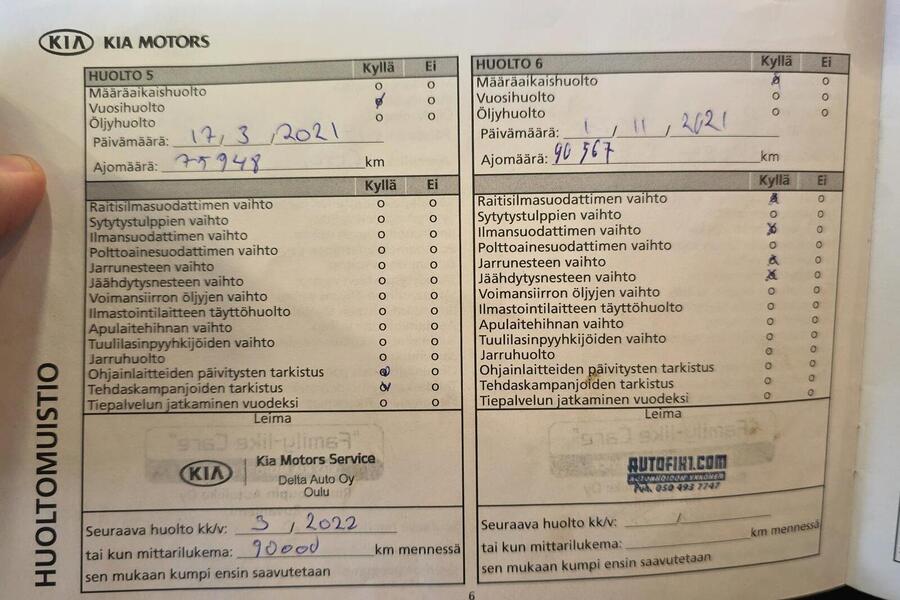 KIA KIA MOTORS
HUOLTOMUISTIO
HUOLTO 5 Kyllä Ei
Määräaikaishuolto o o
Vuosihuolto o
Öljyhuolto o o
Päivämäärä: 17 / 3 / 2021
Ajomäärä: 75948 km
Kyllä Ei
Raitisilmasuodattimen vaihto o o
Sytytystulppien vaihto o o
Ilmansuodattimen vaihto o o
Polttoainesuodattimen vaihto o o
Jarrunesteen vaihto o o
Jäähdytysnesteen vaihto o o
Voimansiirron öljyjen vaihto o o
Ilmastointilaitteen täyttöhuolto o o
Apulaitehihnan vaihto o o
Tuulilasinpyyhkijöiden vaihto o o
Jarruhuolto o o
Ohjainlaitteiden päivitysten tarkistus o
Tehdaskampanjoiden tarkistus o
Tiepalvelun jatkaminen vuodeksi o o
Leima
KIA Kia Motors Service
Delta Auto Oy
Oulu
Seuraava huolto kk/v: 3 / 2022
tai kun mittarilukema: 90000 km mennessä
sen mukaan kumpi ensin saavutetaan
HUOLTO 6 Kyllä Ei
Määräaikaishuolto o
Vuosihuolto o o
Öljyhuolto o o
Päivämäärä: 1 / 11 / 2021
Ajomäärä: 90 567 km
Kyllä Ei
Raitisilmasuodattimen vaihto x o
Sytytystulppien vaihto o o
Ilmansuodattimen vaihto x o
Polttoainesuodattimen vaihto o o
Jarrunesteen vaihto x o
Jäähdytysnesteen vaihto x o
Voimansiirron öljyjen vaihto o o
Ilmastointilaitteen täyttöhuolto o o
Apulaitehihnan vaihto o o
Tuulilasinpyyhkijöiden vaihto o o
Jarruhuolto o o
Ohjainlaitteiden päivitysten tarkistus o o
Tehdaskampanjoiden tarkistus o o
Tiepalvelun jatkaminen vuodeksi o o
Leima
AUTOFIX1.COM
AUTONHOIDON YKKÖNEN
Puh. 050 493 7747
Seuraava huolto kk/v: /
tai kun mittarilukema: km mennessä
sen mukaan kumpi ensin saavutetaan
6